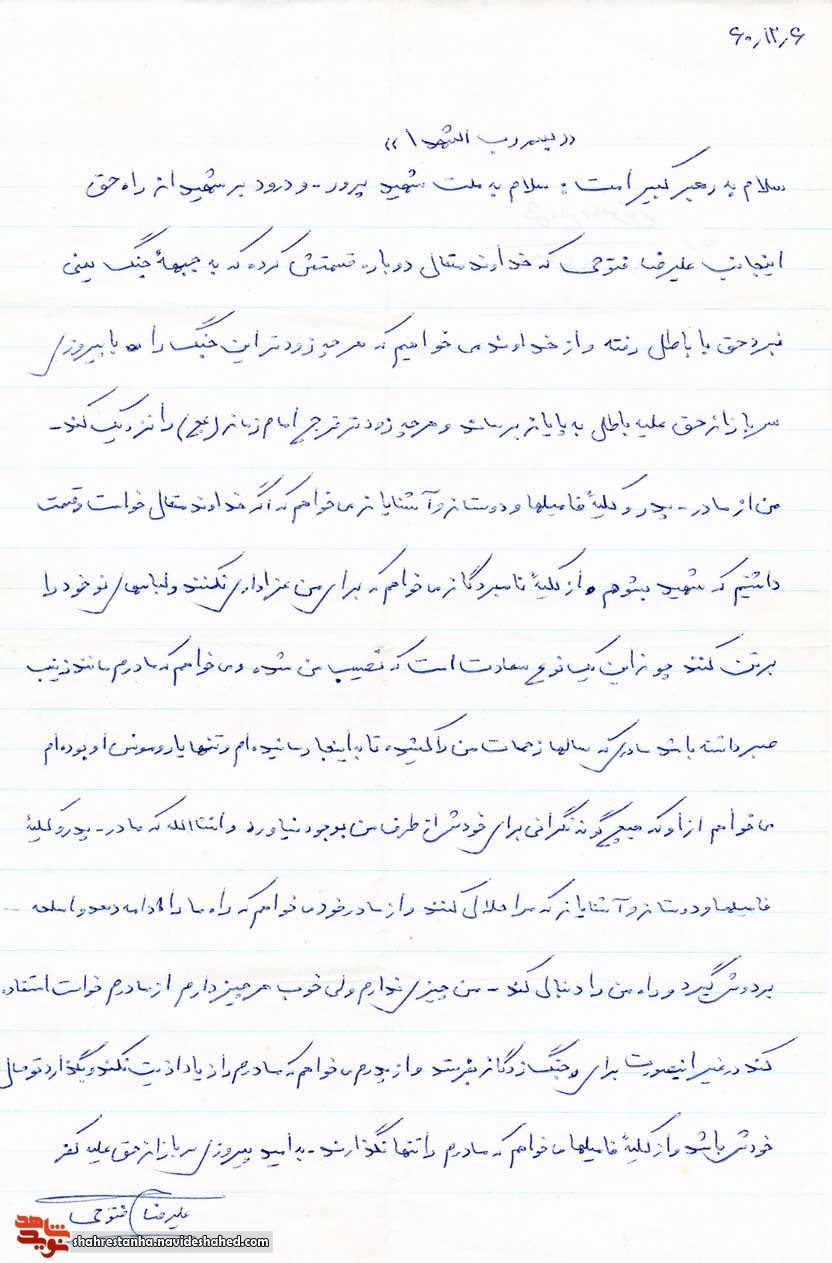 ۶۰٫۱۲٫۶
«بسم رب الشهدا»
سلام به رهبر کبیر امت، سلام به ملت شهید پرور - و درود بر شهیدان راه حق
اینجانب علیرضا فتوحی که خداوند متعال دوباره قسمتش کرده که به جبههٔ جنگ یعنی
نبرد حق با باطل رفته و از خداوند می خواهیم که هر چه زودتر این جنگ را با پیروزی
سربازان حق علیه باطل به پایان برساند و هر چه زودتر فرج امام زمان (عج) را نزدیک کند -
من از مادر - پدر و کلیهٔ فامیلها و دوستان و آشنایان می خواهم که اگر خداوند متعال خواست و قسمت
داشتیم که شهید بشوم از کلیهٔ نامبردگان می خواهم که برای من عزاداری نکنند و لباسهای نو خود را
بر تن کنند چون این یک نوع سعادت است که نصیب من شده و می خواهم که مادرم مانند زینب
صبر داشته باشد مادری که سالها زحمات من را کشیده تا به اینجا رسانیده ام و تنها یار و مونس او بوده ام
می خواهم از او که هیچ گونه نگرانی برای خودش از طرف من بوجود نیاورد و انشاالله که مادر - پدر و کلیهٔ
فامیلها و دوستان و آشنایان که مرا حلال کنند و از مادر خود می خواهم که راه ما را ادامه دهد و اسلحه
بر دوش گیرد و راه من را دنبال کند - من چیزی ندارم ولی خوب هر چیز دارم از مادرم خواست استفاده
کند در غیر اینصورت برای جنگ زدگان بفرستد و از پدرم می خواهم که مادرم را زیاد اذیت نکند و بگذارد تو حال
خودش باشد و از کلیهٔ فامیلها می خواهم که مادرم را تنها نگذارند - به امید پیروزی سربازان حق علیه کفر
علیرضا فتوحی
شاهد
نوید
shahrestanha.navideshahed.com